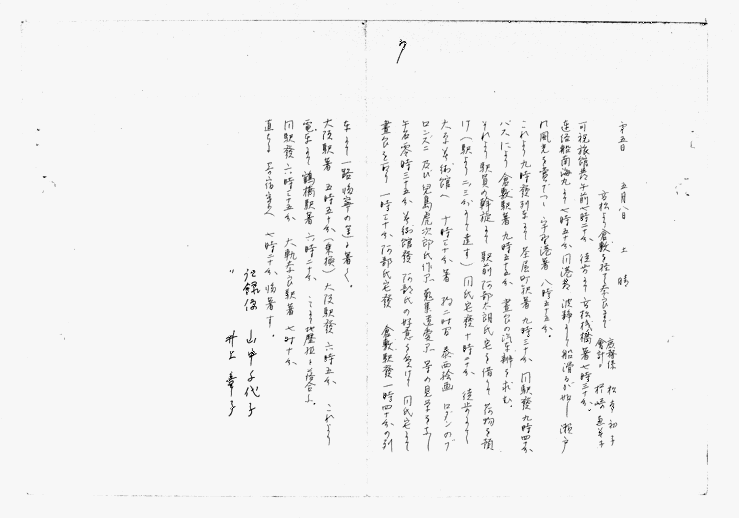 第五日 五月八日 土 晴
高松より倉敷を経て奈良まで
庶務係 松多初子
会計係
可祝旅館発午前七時二十分 徒歩にて高松桟橋着七時三十分。
連絡船南海丸にて七時五十分同港発 波静にして船滑るが如し 瀬戸
の風光を賞でつゝ宇野港着 八時五十五分。
これより九時発列車にて茶屋町駅着 九時三十分 同駅発九時四十分
バスにより倉敷駅着九時五十五分 昼食の汽車弁を求む。
それより駅員の斡旋にて駅前阿部太朗氏宅を借りて荷物を預
け(駅より二三分にて達す) 同氏宅発十時二十分 徒歩にて
大原美術館へ 十時三十分着 約二時間 泰西絵画 ロダンのブ
ロンズ 及び児島虎次郎氏作品 蒐集遺愛品 等の見学をなし
午后零時三十五分 美術館発 阿部氏の好意を受けて同氏宅にて
昼食を取り 一時三十分阿部氏宅発 倉敷駅発一時四十分の列
車にて一路帰寧の途に着く。
大阪駅着 五時五十分(乗換)大阪駅発 六時五分 これより
電車にて鶴橋駅着 六時二十分 こゝにて地歴組と落合ふ。
同駅発六時三十五分 大軌奈良駅着 七時十分
直ちに寄宿舎へ 七時二十分 帰着す。
記録係 山中千代子
〃 井上章子